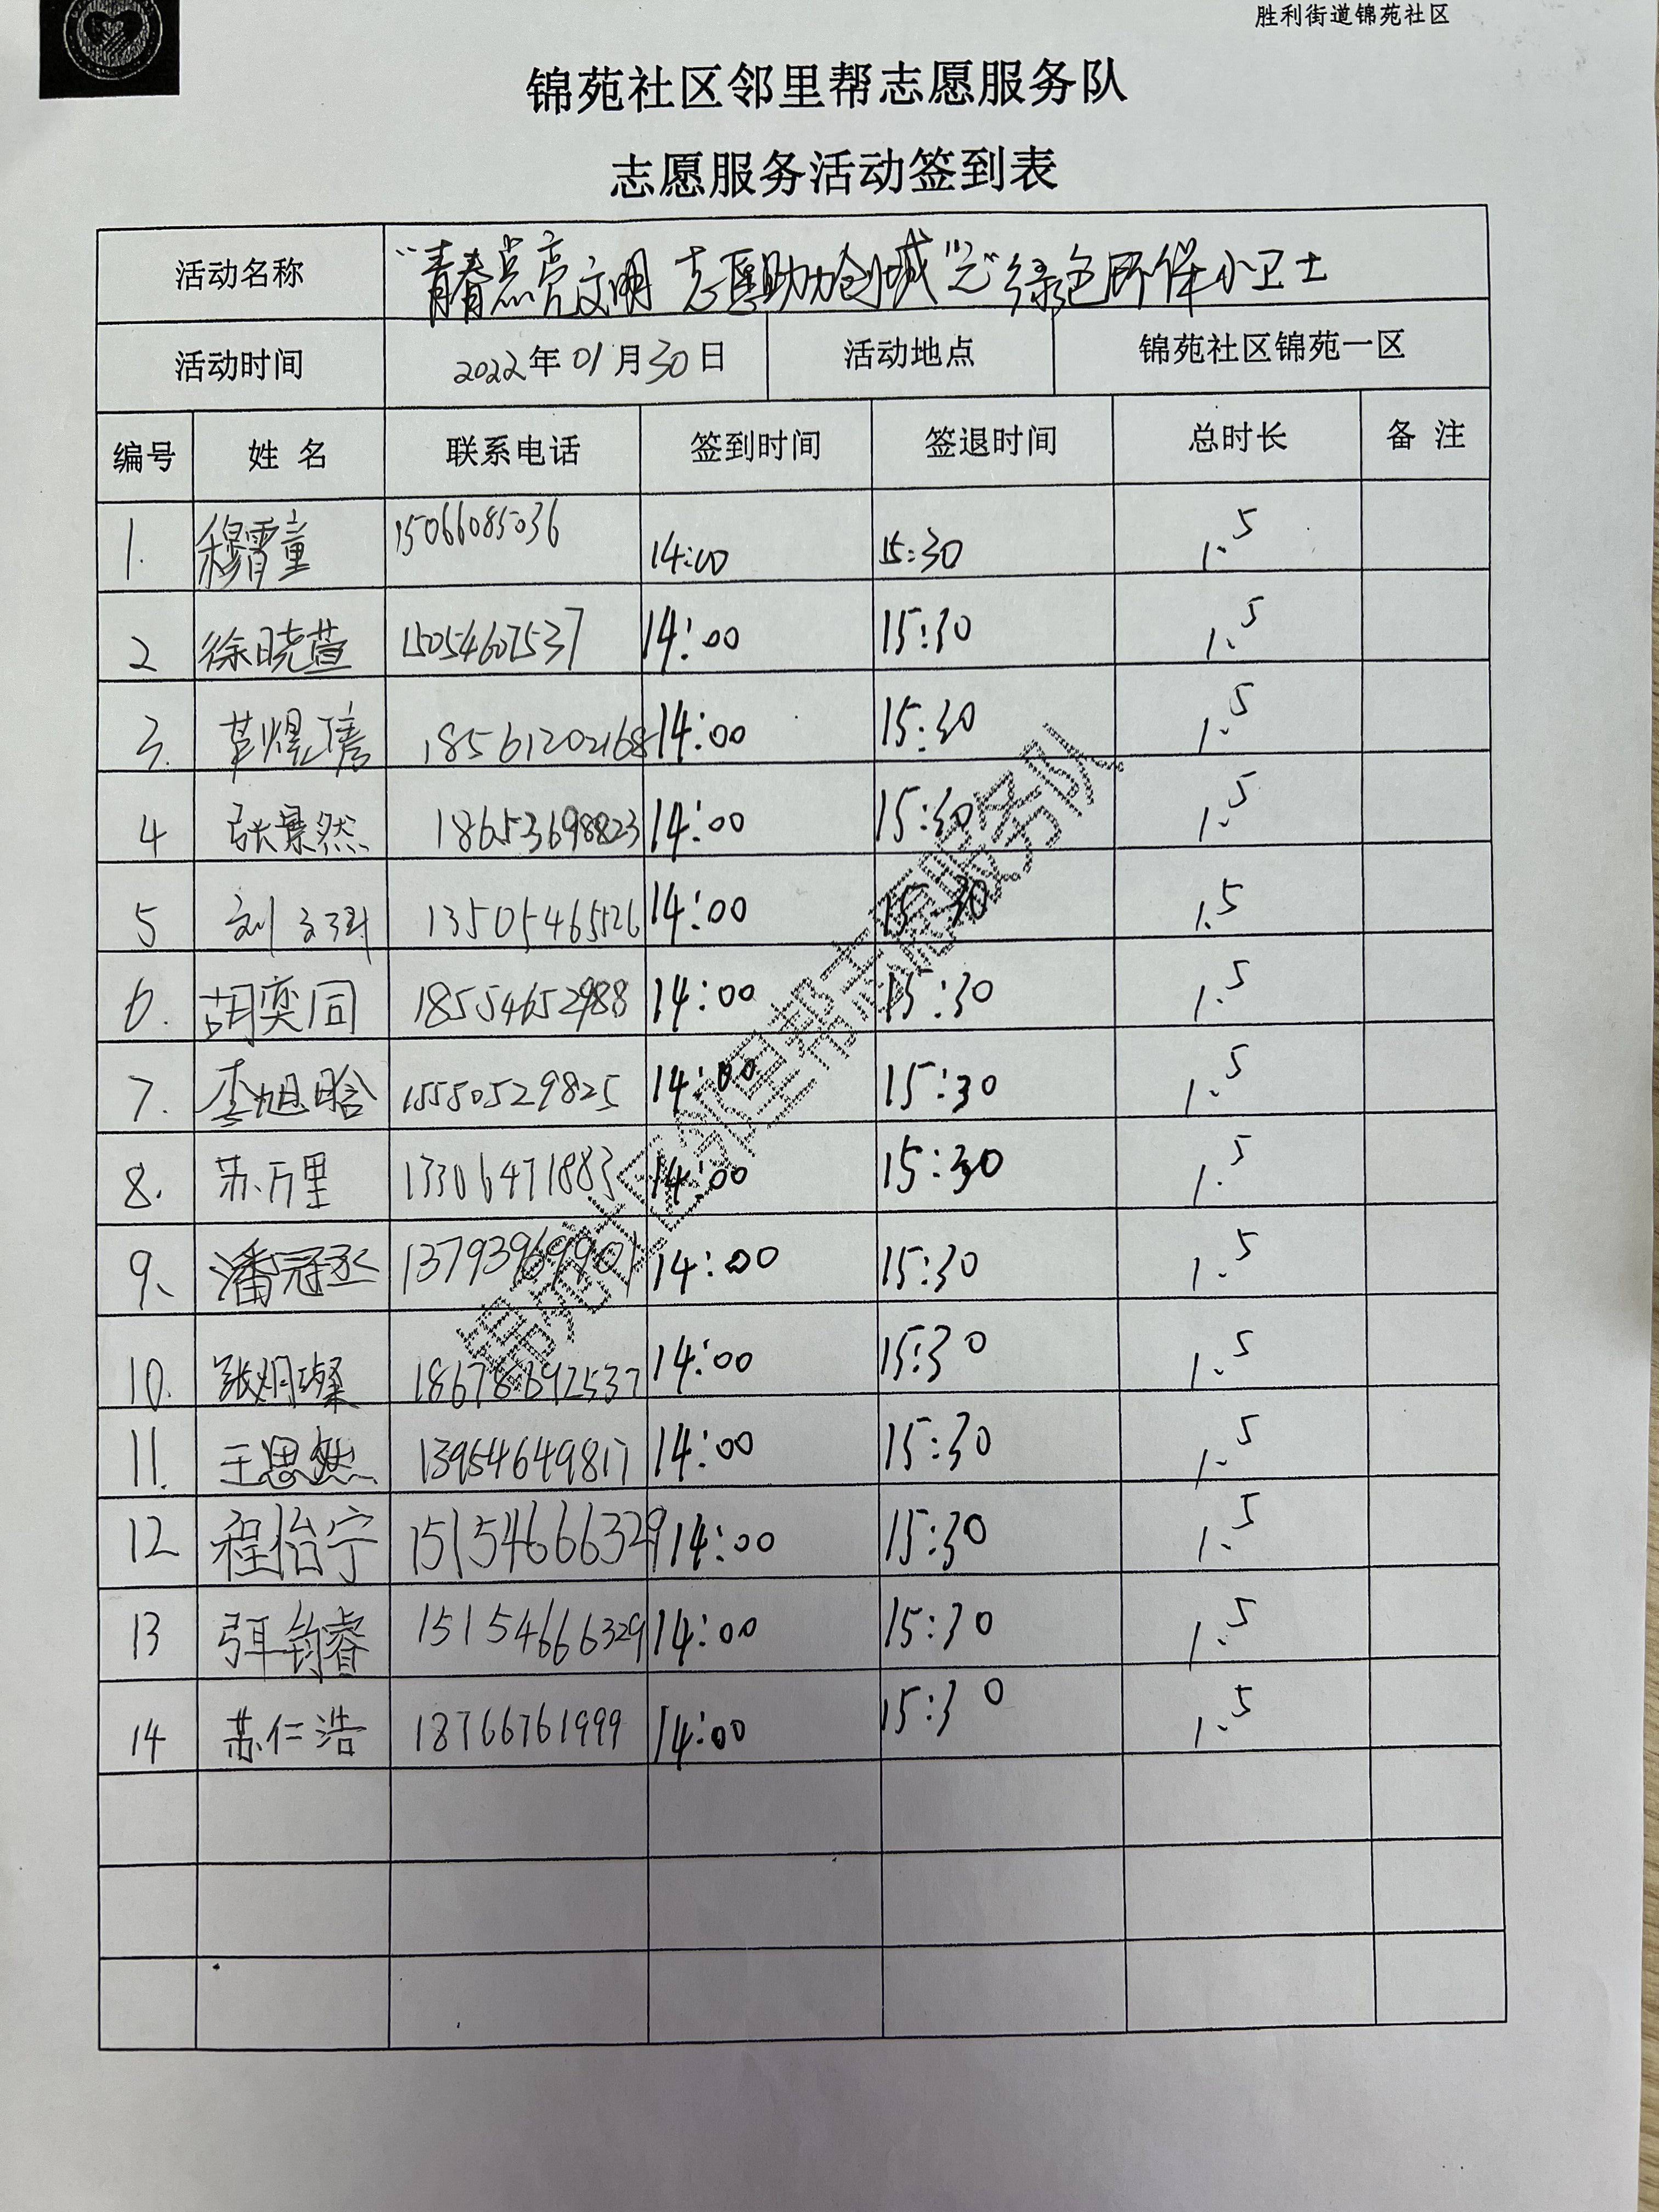 胜利街道锦苑社区
锦苑社区邻里帮志愿服务队
志愿服务活动签到表
活动名称 “青春点亮文明 志愿助力创城”之“绿色环保小卫士
活动时间 2022年01月30日 活动地点 锦苑社区锦苑一区
编号 姓名 联系电话 签到时间 签退时间 总时长 备注
1. 穆霄童 15066085036 14:00 15:30 1.5
2 徐晓萱 15054607537 14:00 15:30 1.5
3. 18561202168 14:00 15:30 1.5
4 张景然 18653698823 14:00 15:30 1.5
5 刘 13505465526 14:00 15:30 1.5
6. 胡奕同 18554652988 14:00 15:30 1.5
7. 李旭晗 15550529825 14:00 15:30 1.5
8. 苏万里 13306471883 14:00 15:30 1.5
9、 潘冠丞 13793969901 14:00 15:30 1.5
10. 张炳璨 18678692537 14:00 15:30 1.5
11. 王思然 13954649817 14:00 15:30 1.5
12 程怡宁 15154666329 14:00 15:30 1.5
13 弭钧睿 15154666329 14:00 15:30 1.5
14 苏仁浩 18766761999 14:00 15:30 1.5
锦苑社区邻里帮志愿服务队